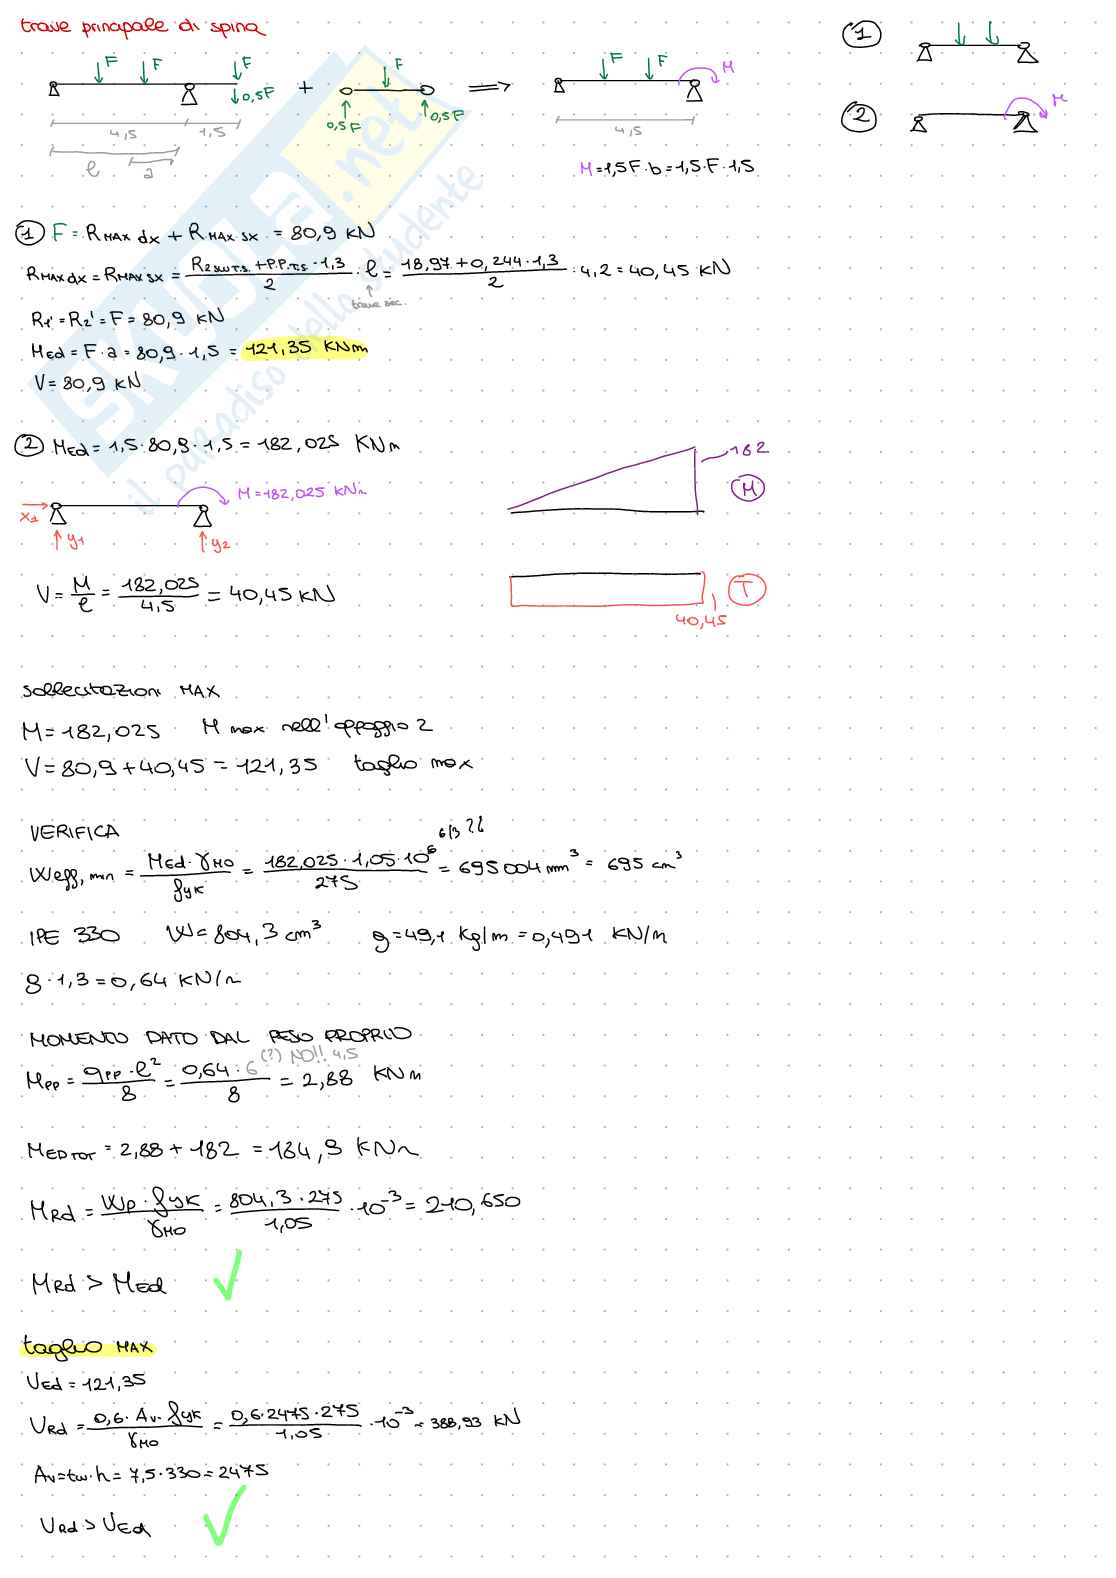 trave principale di spina
F F F 0,5F + F 0,5F 0,5F ⟹ F F M
4,5 1,5 4,5
l a
M=1,5F·b=1,5·F·1,5
1
2 M
1 F=RMAX dx + RMAX sx = 80,9 kN
RMAX dx = RMAX sx = (R2SWT.S. + P.P.T.S · 1,3)/2 · l = (18,97+0,244·1,3)/2 · 4,2 = 40,45 KN
trave sec.
R1'=R2'=F=80,9 KN
MEd = F·a = 80,9·1,5 = 121,35 KNm
V=80,9 KN
2 MEd = 1,5·80,9·1,5 = 182,025 KNm
M=182,025 KNm
x1 y1 y2
182 M
V = M/l = 182,025/4,5 = 40,45 KN
T 40,45
sollecitazioni MAX
M=182,025 M max nell'appoggio 2
V=80,9+40,45=121,35 taglio max
VERIFICA
Weff,min = MEd·γM0/fyk = 182,025·1,05·10⁶/275 = 695004 mm³ = 695 cm³
IPE 330 W=804,3 cm³ g=49,1 Kg/m=0,491 KN/m
g·1,3=0,64 KN/m
MOMENTO DATO DAL PESO PROPRIO
(?) NO!! 4,5
MPP = qPP·l²/8 = 0,64·6/8 = 2,88 KNm
MEDTOT = 2,88+182 = 184,9 KNm
MRd = Wp·fyk/γM0 = 804,3·275/1,05 ·10⁻³ = 210,650
MRd > MEd
taglio MAX
VEd=121,35
VRd = 0,6·Av·fyk/γM0 = 0,6·2475·275/1,05 ·10⁻³ = 388,93 KN
Av=tw·h=7,5·330=2475
VRd>VEd
SKUOLA.net
il paradiso dello studente